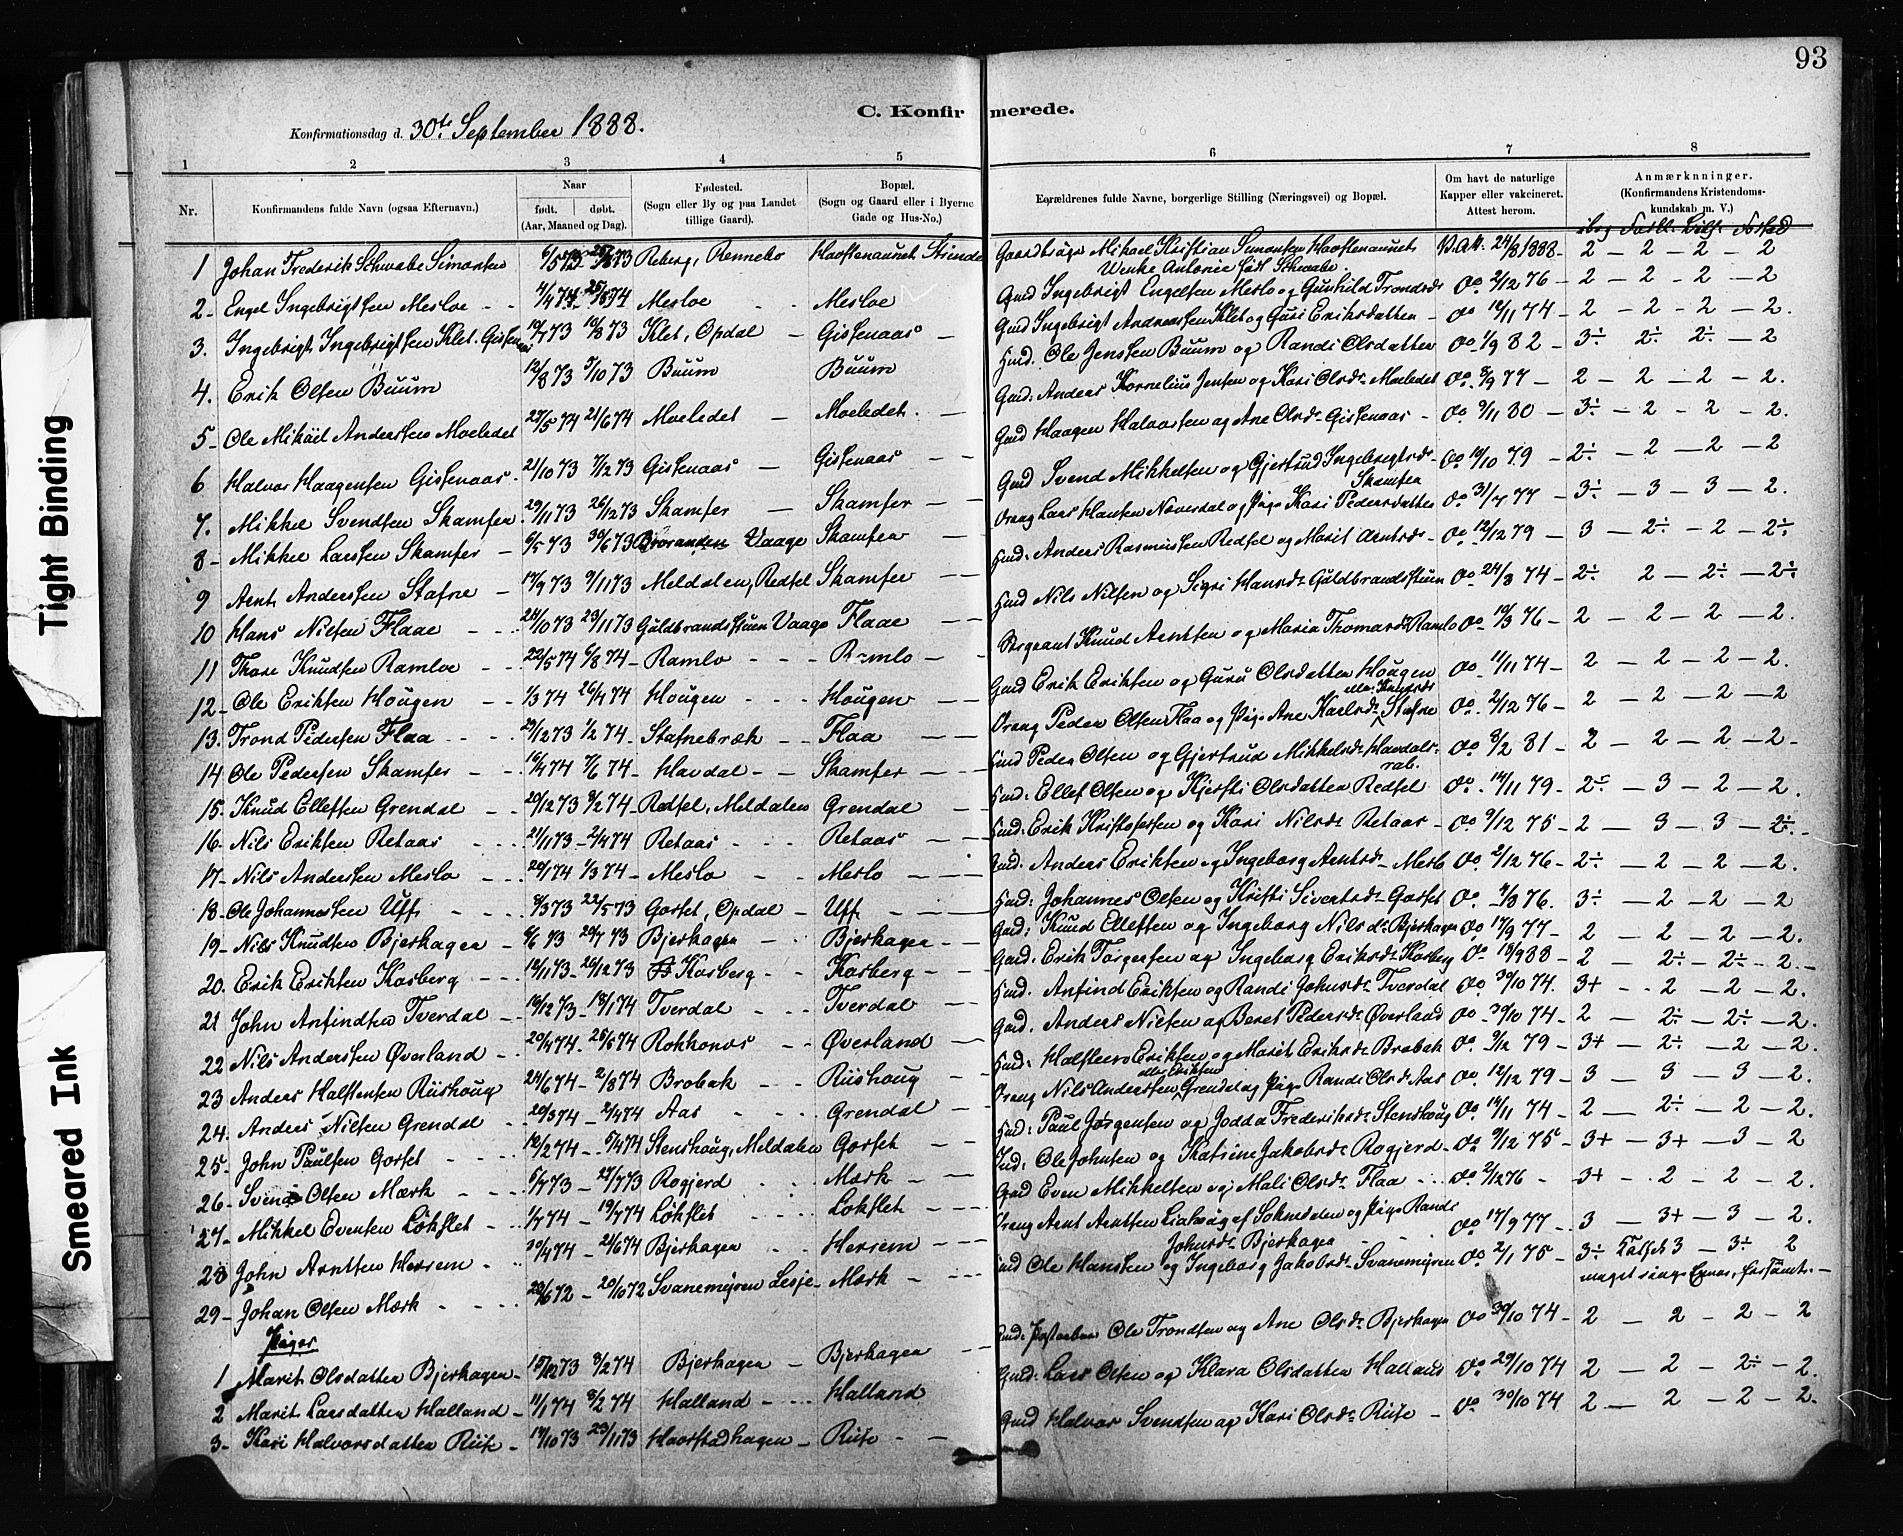 93
C. Konfirmerede.
Konfirmationsdag d. 30te September 1888.
1 2 3 4 5 6 7 8
Nr. Konfirmandens fulde Navn (ogsaa Efternavn). Naar født. døbt. (Aar, Maaned og Dag). Fødested. (Sogn eller By og paa Landet tillige Gaard). Bopæl. (Sogn og Gaard eller i Byerne Gade og Hus-No.) Forældrenes fulde Navne, borgerlige Stilling (Næringsvei) og Bopæl. Om havt de naturlige Kapper eller vakcineret. Attest herom. Anmærkninger. (Konfirmandens Kristendomskundskab m. V.)
1 Johan Frederik Schwabe Simonsen Reberg, Rennebo Mikael Kristian Simonsen V. Att. 24/8 1888 - 2 - 2 - 2 - 2
Wenke Antonie født Schwabe.
2 - Engel Ingebrigtsen Mesloe - - 4/4 74 25/5 74 Mesloe - Mesloe Gmd Ingebrigt Engelsen Meslo og Gunhild Trondsdr do 2/12 76 - 2 - 2 - 2 - 2
3. Ingebrigt Ingebrigtsen Klet. Gisenaas 10/7 73 10/8 73 Klet, Opdal - Gisenaas - Gmd Ingebrigt Andreassen Klet og Guri Eriksdatter - do 14/11 74 - 2 - 2 - 2 - 2.
4. Erik Olsen Buum 12/8 73 5/10 73 Buum Buum Hmd. Ole Jensen Buum og Randi Olsdatter do 1/9 82 - 3÷ 2÷ 2÷ - 2
5 - Ole Mikael Andersen Moeledet 27/5 74 21/6 74 Moeledet - Moeledet. - Gmd: Anders Kornelius Jensen og Kari Olsdr Moeledet do 8/9 77 - 2 - 2 - 2 - 2.
6 Halvor Haagensen Gisenaas. 21/10 73 7/12 73 Gisenaas - Gisenaas - - Gmd Haagen Halvorsen og Ane Olsdr Gisenaas - do 9/11 80 - 3÷ - 2 - 2 - 2.
7. Mikkel Svendsen Skamfer. 29/11 73 26/12 73 Skamfer - Skamfer - - Gmd Svend Mikkelsen og Gjertrud Ingebrigtsdr - Skamfer do 19/10 79 - 2÷ - 2 - 2 - 2
8 - Mikkel Larsen Skamfer - 6/5 73 30/6 73 Vaage Skamfer - - Dreng Lars Hansen Næverdal og Pige Kari Pedersdatter do 31/7 77 - 3÷ - 3 - 3 - 2.
9 Arnt Andersen Stafne - 17/9 73 9/11 73 Meldalen, Redsel Skamfer - - Hmd: Anders Rasmussen Redsel og Marit Arntsdr - do 12/12 79 - 3 - 2÷ - 2 - 2÷
10 Hans Nilsen Flaae - - 24/10 73 23/11 73 Guldbrandstuen Vaage Flaae - - Hmd Nils Nilsen og Sigri Hansdr Guldbrandstuen do 24/3 74 - 2÷ 2 - 2÷ - 2÷
11 Thore Knudsen Ramloe - - 22/5 74 6/8 74 - Ramlo - - - Ramlo - - Sergeant Knud Arntsen og Maria Thomasdr Ramlo do 10/3 76 - 2 - 2 - 2 - 2.
12 - Ole Eriksen Hougen - - 1/3 74 26/4 74 - Hougen - - - Hougen - - Gmd Erik Eriksen og Guru Olsdatter Hougen do 11/11 74 - 2 - 2 - 2 - 2.
13. Trond Pedersen Flaa - - - 1/2 74 - Stafnebræk - Flaa - - Dreng Peder Olsen Flaa og Pige Ane Karlsdr Stafne do 2/12 76 - 2 - 2 - 2 - 2
14 Ole Pedersen Skamfer - - 16/4 74 7/6 74 - Havdal - - Skamfer - - Hmd Peder Olsen og Gjertrud Mikkelsdr Havdals- do 8/2 81 - 2 - 2 - 2 - 2 -
15. Knud Ellefsen Grendal - - 20/12 73 8/2 74 - Redsel, Meldalen Grendal - - Hmd: Ellef Olsen og Kjersti Olsdatter Redsel do. 14/11 79 - 2÷ - 3 - 2 - 2.
16 - Nils Eriksen Retaas - - - 21/11 73 - 2/4 74 - Retaas - - - Retaas - - Hmd: Erik Kristofersen og Kari Nilsdr Retaas - do 9/12 75 - 2 - 3 - 3 - 2÷ -
17 - Nils Andersen Meslo - - 20/1 74 1/3 74 - Meslo - - Meslo - - - Gmd: Anders Eriksen og Ingeborg Arntsdr - Meslo do 2/12 76 - 2÷ - 2 - 2 - 2.
18 - Ole Johannessen Uff. - - - 8/3 73 22/5 73 Gorset, Opdal - Uff - - - Hmd: Johannes Olsen og Kristi Sivertsdr Gorset do. - 4/3 76. 3÷ - 2 - 2 - 2
19 - Nils Knudsen Bjerhagen - - 6/6 73 20/7 73 Bjerhagen - - Bjerhagen - - Gmd: Knud Ellefsen og Ingeborg Nilsdr Bjerhagen do 17/9 77 - 2 - 2 - 2 - 2.
20. Erik Eriksen Kosberg - - 18/11 73 - 26/12 73 Kosberg - - Kosberg - - Gmd. Erik Torgersen og Ingeborg Eriksdr Kosberg do 18/9 88 - 2 - 2÷ - 2÷ - 2. -
21 John Anfindsen Tverdal - - 16/12 73 - 18/1 74 - Tverdal - - - Tverdal - - Hmd. Anfind Eriksen og Randi Johnsdr Tverdal do 30/10 74. 3+ - - 2 - 2 - 2.
22 Nils Andersen Øverland - - 20/4 74. - 25/5 74 - Rokkones - - Øverland - - Gmd. Anders Nilsen og Beret Pedersdr Øverland do - 30/10 74 - 2 - 2÷ - 2÷ - 2.
23 Anders Halstensen Riishoug 24/6 74 - 2/8 74 - Brobak - - - Riishoug - - Hmd: Halsten Eriksen og Marit Eriksdr Brobak do. 9/12 79 - 3+ - 2÷ - 2 - 2.
24. Anders Nilsen Grendal - - - 20/3 74 - 2/4 74 - Aas - - - - Grendal - - Dreng Nils Andersen eller Eriksen Grendal og Pige Randi Olsdr Aas do. 12/12 79 - 3 - 3 - 3 - 2.
25 - John Paulsen Gorset - - - - 12/2 74 - - 5/4 74 Stenshoug, Meldalen Gorset - - Hmd: Paul Jørgensen og Jodda Frederiksdr Stenshoug do 14/11 74 - 2 - 2÷ - 2 - 2.
26 - Svend Olsen Mærk - - - 5/7 73 - 27/7 73 Rogjerd - - Mærk - - - Hmd: Ole Johnsen og Katrine Jakobsdr Rogjerd - do 9/12 75 - 3+ - 3+ - 3 - 2
27 - Mikkel Evensen Løkslet - - 1/7 74 - 19/7 74 Løkslet - - Løkslet - - - Gmd Even Mikkelsen og Mali Olsdr Flaa - - - do 2/12 76 - 3+ - 2 - 2 - 2.
28 John Arntsen Hersem - - 30/4 74 - 21/6 74 Bjerhagen - - Hersem - - Dreng Arnt Arntsen af Soknedalen og Pige Randi Johnsdr Bjerhagen - do 17/9 77 - 3 - 3+ - 3 - 2.
29 - Johan Olsen Mærk - - - - 23/6 72 - 20/10 72 Svanemyren Lesje - Mærk - - - Hmd Ole Hansen og Ingeborg Jakobsdr Svanemyren do 2/1 75 - 3÷ 3 - 3÷ 2
meget ringe Evner, forsømt. -
Piger
1 Marit Olsdatter Bjerhagen - 15/12 73 8/2 74 Bjerhagen - Bjerhagen - - Ole Trondsen og Ane Olsdr Bjerhagen do 30/10 74 - 2 - 2 - 2 - 2
2 Marit Larsdatter Halland - 11/1 74 8/2 74 Halland - - - Halland Gmd: Lars Olsen og Klara Olsdatter Halland do 29/10 74 2 - 2 - 2÷ - 2.
3 - Kari Halvorsdatter Riise - 17/10 73 23/11 73 Haarstadhagen - Riise - - Gmd Halvor Svendsen og Kari Olsdr Riise - do. 30/10 74 2 - 2 - 2 - 2.
Tight Binding
Smeared Ink